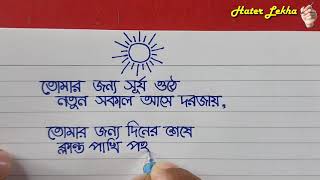 Hater Lekha
তোমার জন্য সূর্য ওঠে
নতুন সকাল আসে দরজায়,
তোমার জন্য দিনের শেষে
ক্লান্ত পাখি পহ